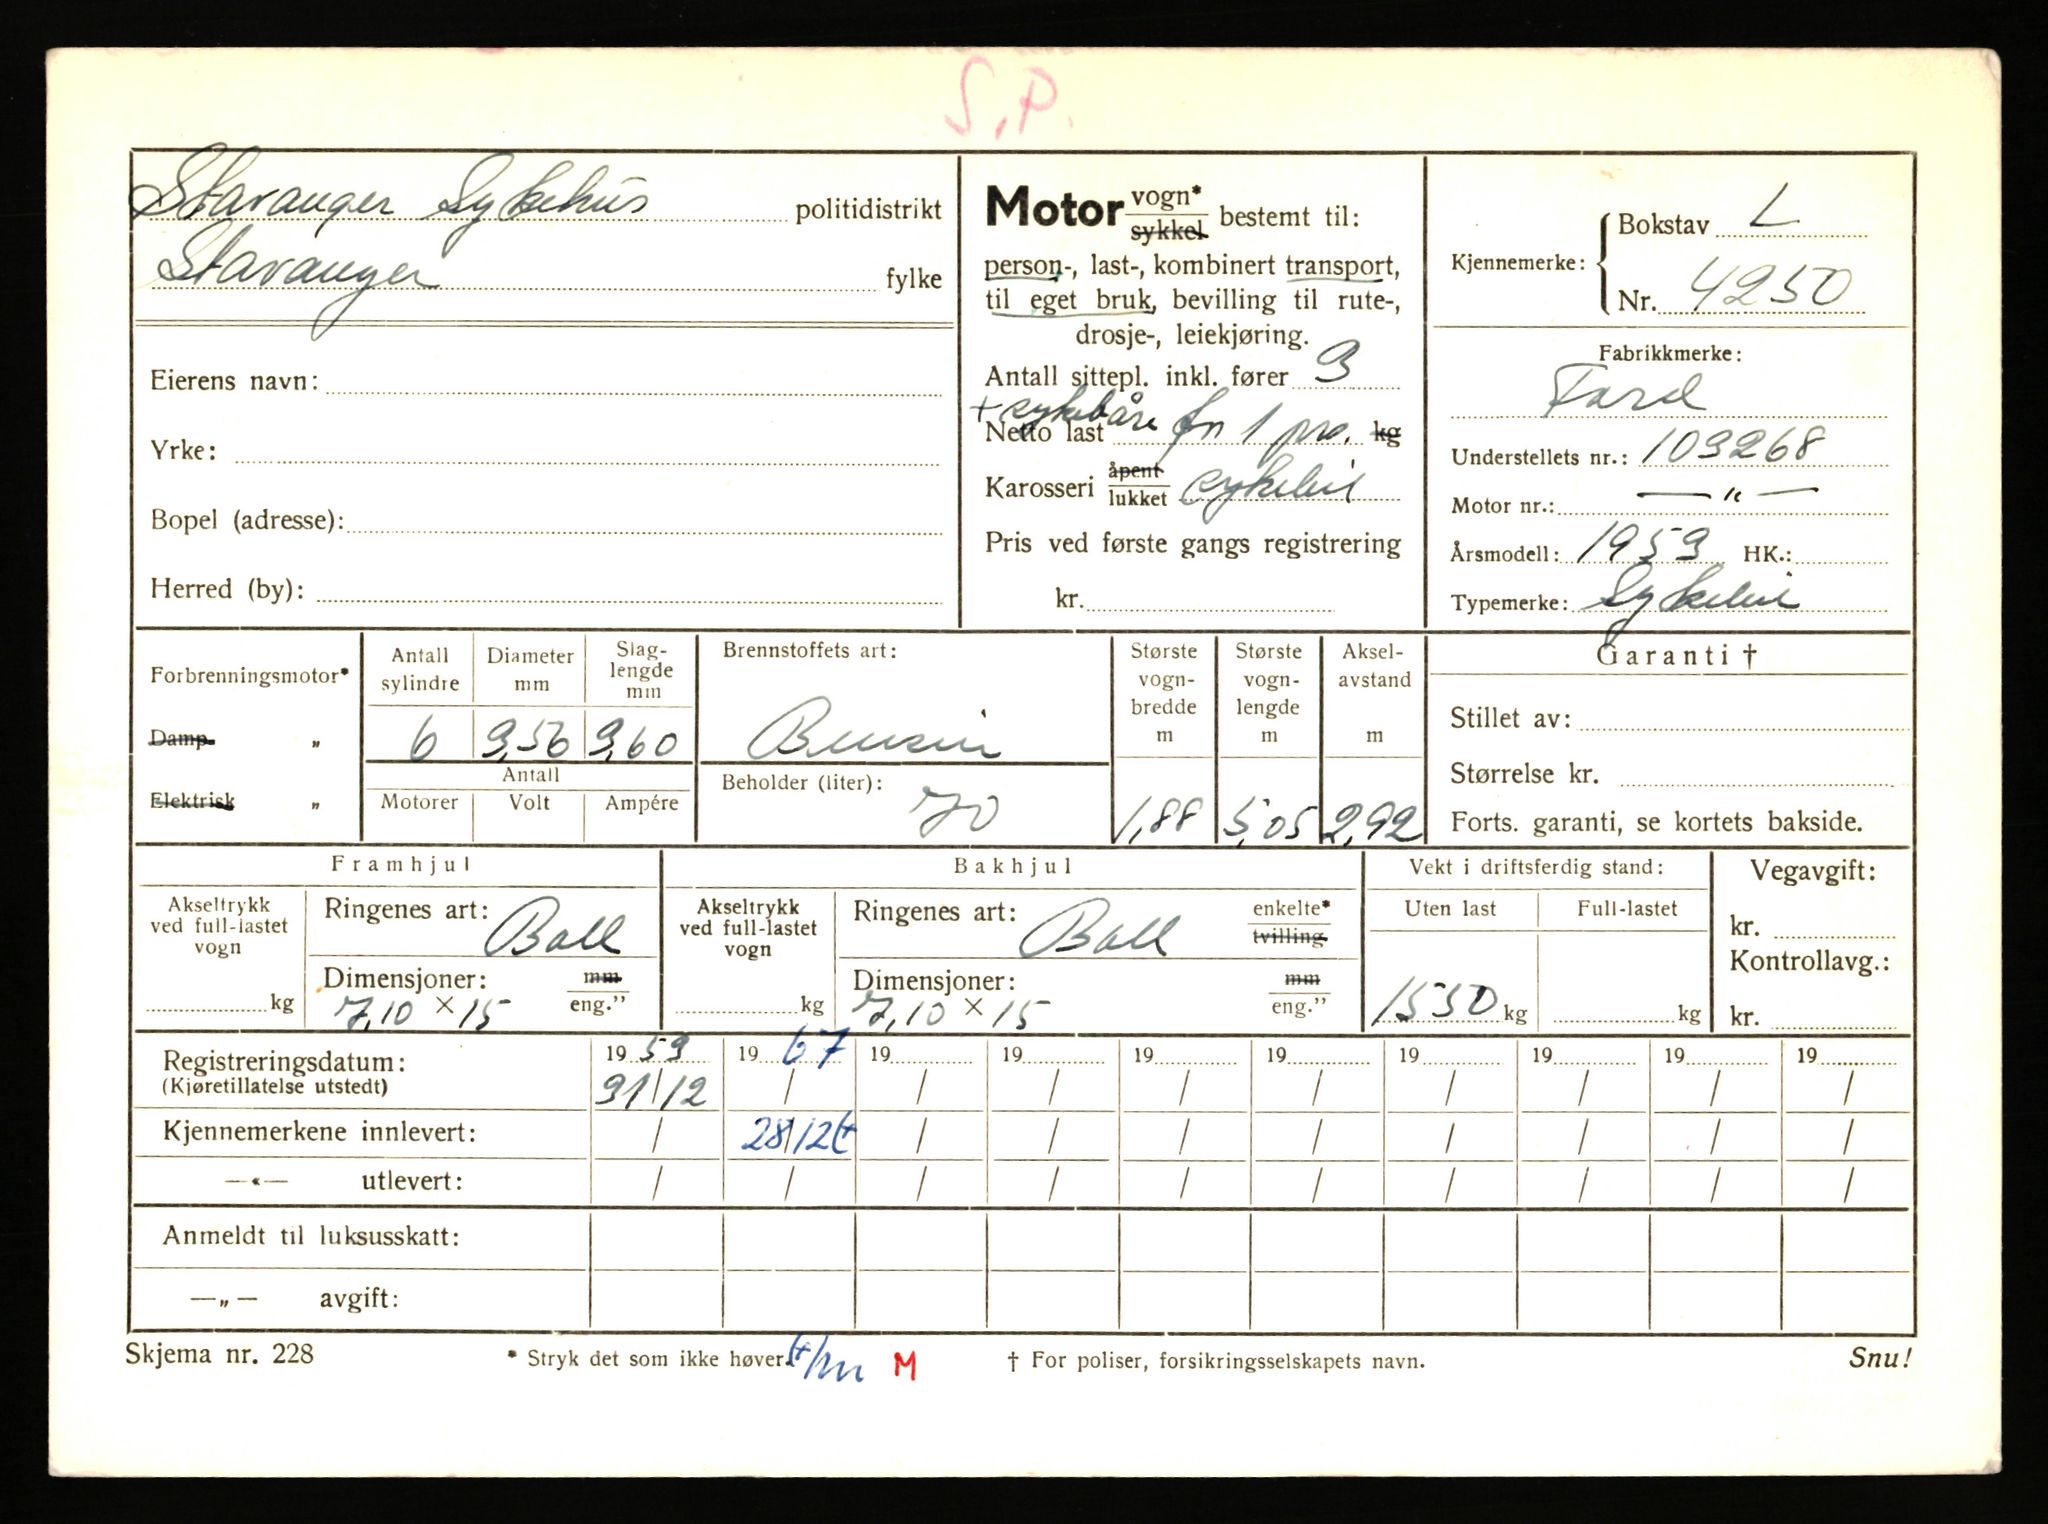 S.P.
Stavanger Sykehus politidistrikt
Stavanger fylke
Eierens navn:
Yrke:
Bopel (adresse):
Herred (by):
Motor vogn* sykkel bestemt til:
person-, last-, kombinert transport,
til eget bruk, bevilling til rute-,
drosje-, leiekjøring.
Antall sittepl. inkl. fører 3
+ sykebåre
Netto last for 1 prs. kg
Karosseri åpent lukket sykebil
Pris ved første gangs registrering
kr.
Kjennemerke: Bokstav L
Nr. 4250
Fabrikkmerke:
Ford
Understellets nr.: 103268
Motor nr.: — " —
Årsmodell: 1959 HK.:
Typemerke: Sykebil
Forbrenningsmotor*
Damp. „
Elektrisk „
Antall sylindre Diameter mm Slaglengde mm
6 9,56 9,60
Antall
Motorer Volt Ampére
Brennstoffets art:
Bensin
Beholder (liter):
70
Største vognbredde m
1,88
Største vognlengde m
5,05
Akselavstand m
2,92
Garanti †
Stillet av:
Størrelse kr.
Forts. garanti, se kortets bakside.
Framhjul
Akseltrykk ved full-lastet vogn
kg
Ringenes art: Ball
Dimensjoner: mm eng.”
7,10 × 15
Bakhjul
Akseltrykk ved full-lastet vogn
kg
Ringenes art: Ball enkelte* tvilling
Dimensjoner: mm eng.”
7,10 × 15
Vekt i driftsferdig stand:
Uten last Full-lastet
1550 kg kg
Vegavgift:
kr.
Kontrollavg.:
kr.
Registreringsdatum: 19 59 19 67 19 19 19 19 19 19 19 19
(Kjøretillatelse utstedt) 31/12 / / / / / / / / /
Kjennemerkene innlevert: / 28/12 / / / / / / / /
—«— utlevert: / / / / / / / / / /
Anmeldt til luksusskatt:
—„— avgift:
Skjema nr. 228 * Stryk det som ikke høver. M † For poliser, forsikringsselskapets navn. Snu!